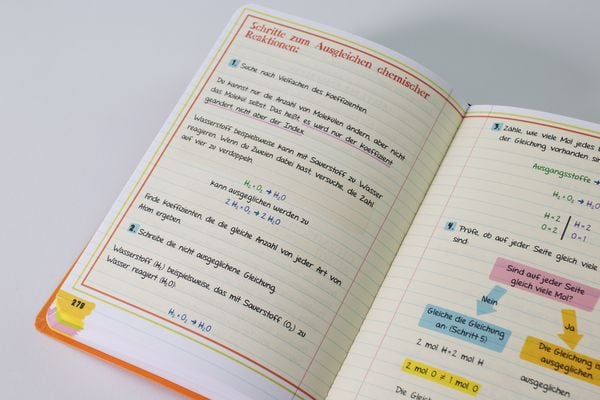 Schritte zum Ausgleichen chemischer
Reaktionen:
1. Suche nach Vielfachen des Koeffizienten.
Du kannst nur die Anzahl von Molekülen ändern, aber nicht
das Molekül selbst. Das heißt es wird nur der Koeffizient
geändert nicht aber der Index.
Wasserstoff beispielsweise kann mit Sauerstoff zu Wasser
reagieren. Wenn du zweien dabei hast, versuche, die Zahl
auf vier zu verdoppeln.
H₂ + O₂ → H₂O
kann ausgeglichen werden zu
2 H₂ + O₂ → 2 H₂O
Finde Koeffizienten, die die gleiche Anzahl von jeder Art von
Atom ergeben.
2. Schreibe die nicht ausgeglichene Gleichung.
Wasserstoff (H₂) beispielsweise, das mit Sauerstoff (O₂) zu
Wasser reagiert (H₂O).
H₂ + O₂ → H₂O
278
3. Zähle, wie viele Mol jedes
der Gleichung vorhanden sin
Ausgangsstoffe →
H₂ + O₂ → H₂O
H = 2 H = 2
O = 2 O = 1
4. Prüfe, ob auf jeder Seite gleich viele
sind.
Sind auf jeder Seite
gleich viele Mol?
Nein
Ja
Gleiche die Gleichung
an. (Schritt 5)
Die Gleichung is
ausgeglichen.
2 mol H = 2 mol H
2 mol O ≠ 1 mol O
ausgeglichen
Die Gleichun